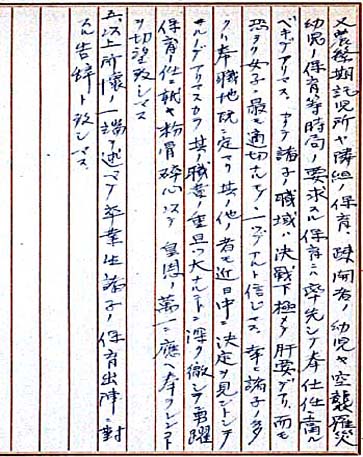 又農繁期託児所ヤ隣組ノ保育、疎開者ノ幼児ヤ空襲罹災
幼児ノ保育等時局ノ要求スル保育ニハ率先シテ奉仕仕ル
ベキデアリマス。諸子ノ職域ハ決戦下極メテ肝要デアリ、而モ
恐ラク女子ニ最モ適切ナモノノ一ツデアルト信ジマス。幸ニ諸子ノ多
クハ奉職地既ニ定マリ其ノ他ノ者モ近日中ニ決定ヲ見ントシテ
ヰルノデアリマスカラ其ノ職責ノ重且ツ大ナルコトニ深ク徹シテ勇躍
保育ノ仕ニ就キ粉骨砕心以テ皇恩ノ萬一ニ應ヘ奉ランコト
ヲ切望致シマス
五、以上所懐ノ一端ヲ述ベテ卒業生諸子ノ保育出陣ニ対
スル告辞ト致シマス